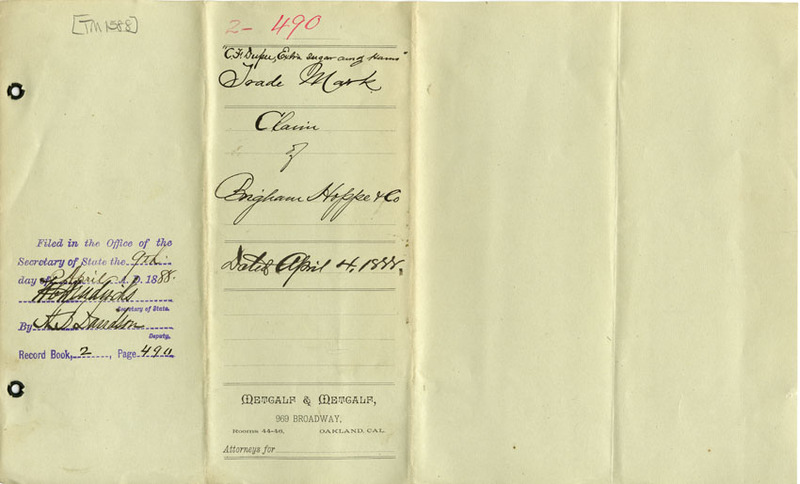 [TM 1588]
Filed in the Office of the
Secretary of State the 9th
day of April A.D. 1888.
Secretary of State.
By A. B. Davidson
Deputy.
Record Book, 2, Page 490
2-490
"C. F. Dupee, Extra Sugar Cured Hams"
Trade Mark
Claim
of
Brigham Hoppe & Co
Dated April 4, 1888.
METCALF & METCALF,
969 BROADWAY,
Rooms 44-46, OAKLAND, CAL.
Attorneys for